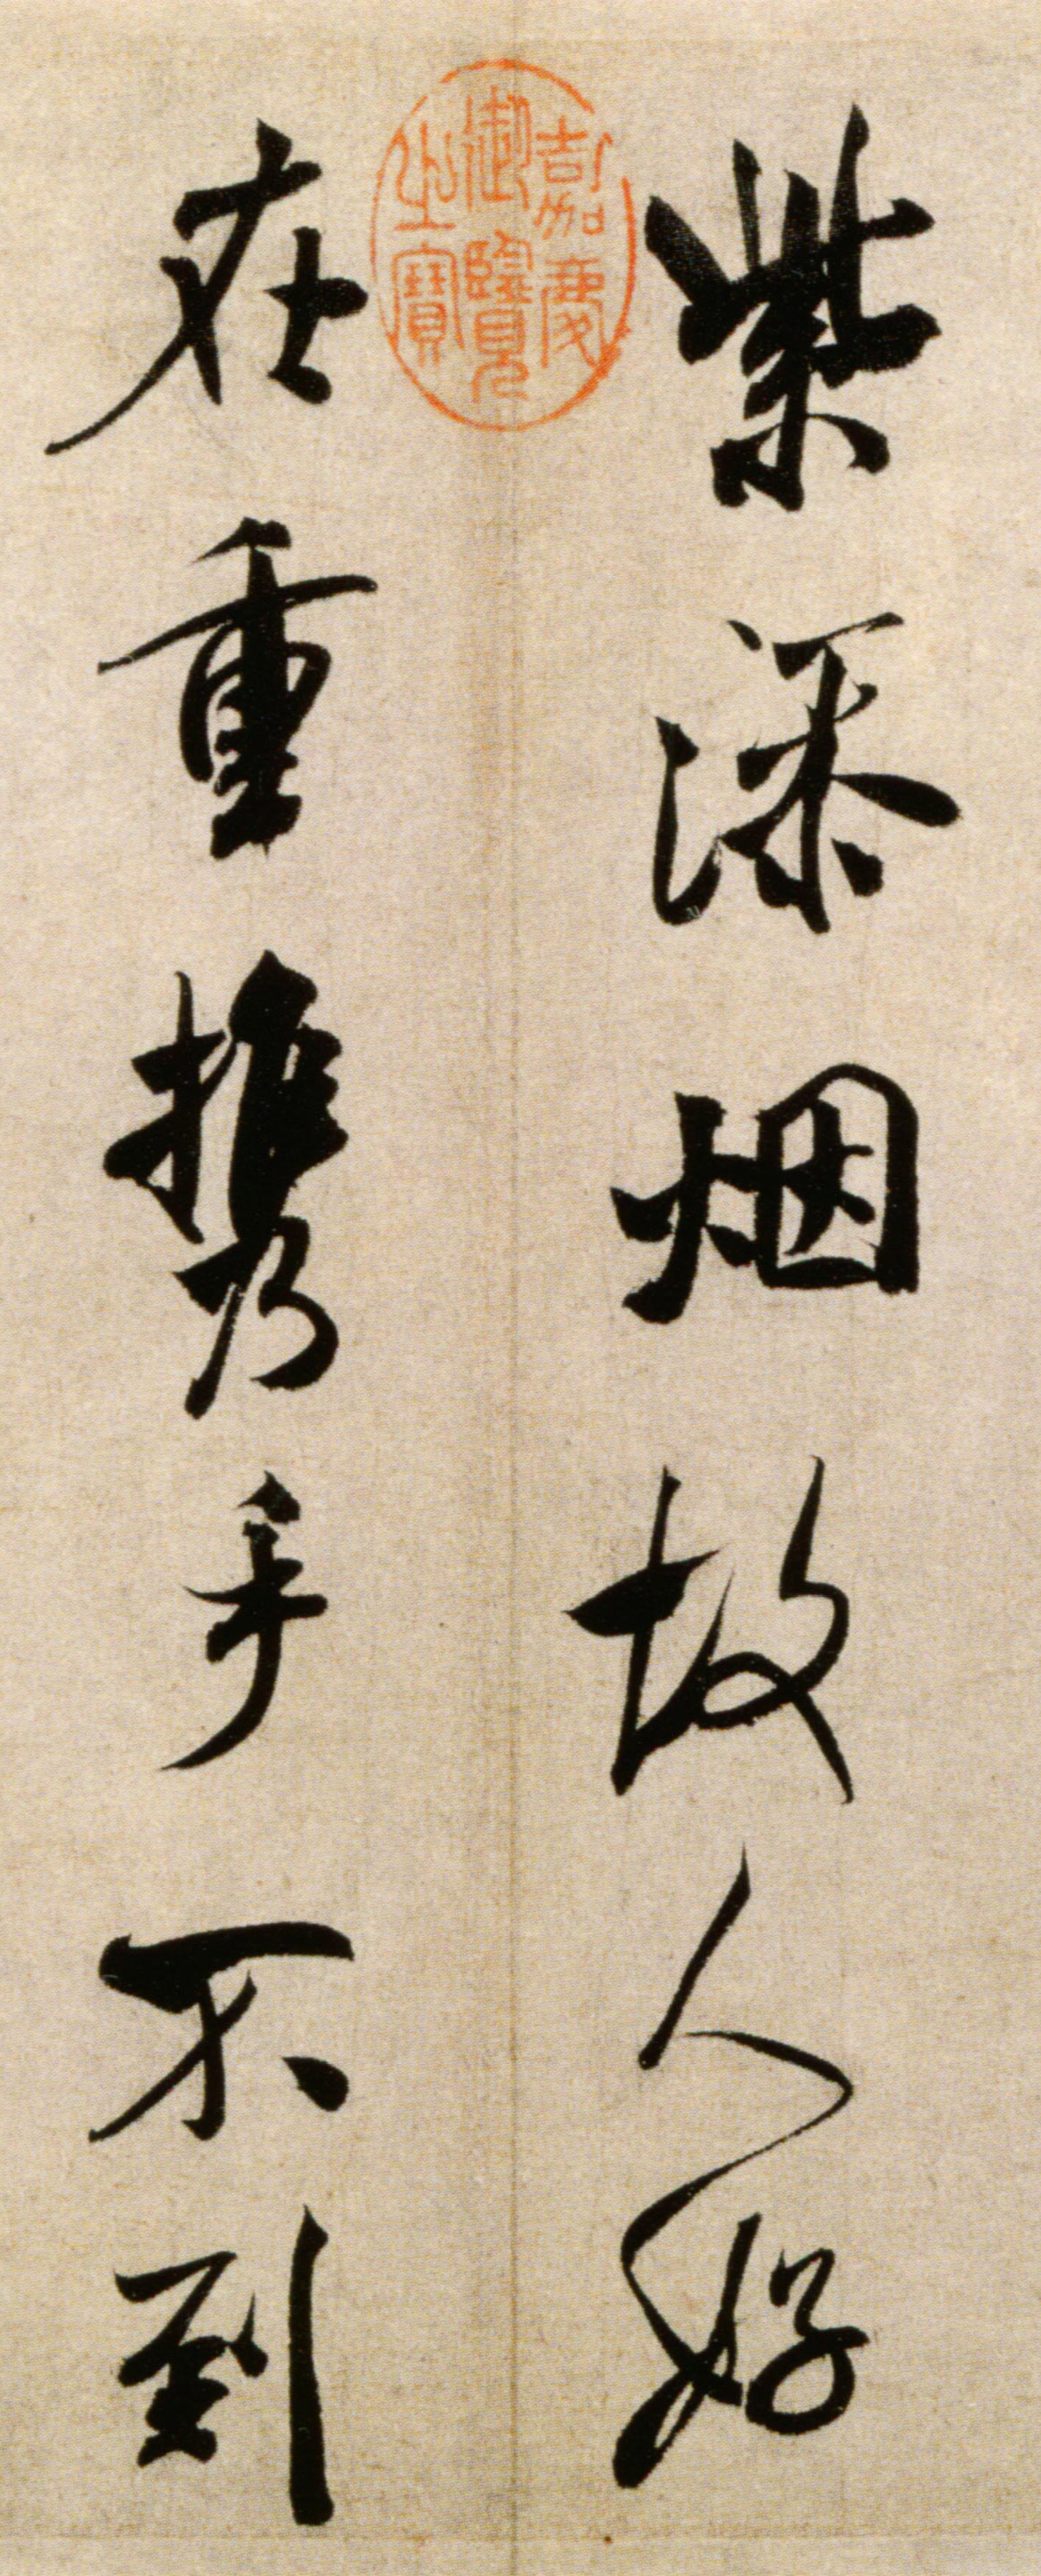 紫添烟故人好
在重携手不到
嘉慶
御覽
之寶